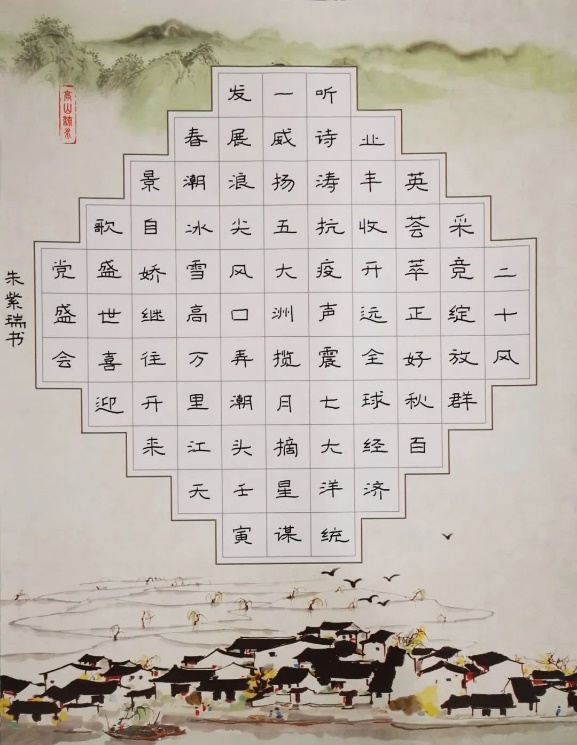 二十风
采竞绽放群
英荟萃正好秋百
业丰收开远全球经济
听诗涛抗疫声震七大洋统
一威扬五大洲揽月摘星谋
发展浪尖风口弄潮头壬寅
春潮雪冰高万里江天
景自娇继往开来
歌盛世喜迎
党盛会
朱紫瑞书
高山流水